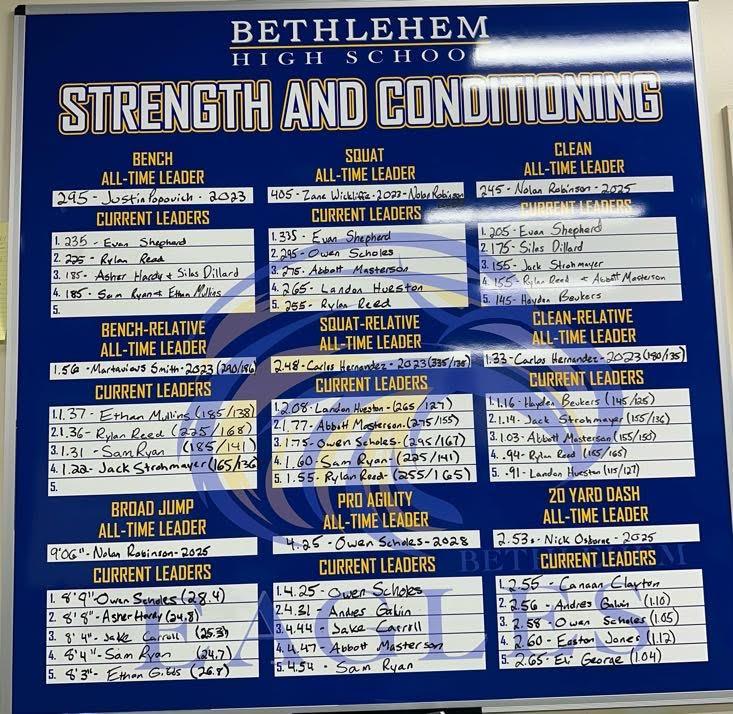 BETHLEHEM
HIGH SCHOO
STRENGTH AND CONDITIONING
BENCH
ALL-TIME LEADER
295 - Justin Popovich - 2023
CURRENT LEADERS
1. 235 - Evan Shepherd
2. 225 - Rylan Read
3. 185 - Asher Hardy & Silas Dillard
4. 185 - Sam Ryan & Ethan Mullins
5.
SQUAT
ALL-TIME LEADER
405 - Zane Wickliffe - 2023 - Nolan Robinson
CURRENT LEADERS
1. 335 - Evan Shepherd
2. 295 - Owen Scholes
3. 275 - Abbott Masterson
4. 265 - Landon Hueston
5. 255 - Rylan Reed
CLEAN
ALL-TIME LEADER
245 - Nolan Robinson - 2025
CURRENT LEADERS
1. 205 - Evan Shepherd
2. 175 - Silas Dillard
3. 155 - Jack Strohmayer
4. 155 - Rylan Reed & Abbott Masterson
5. 145 - Hayden Beukers
BENCH-RELATIVE
ALL-TIME LEADER
1.56 - Martavious Smith - 2023 (290/186)
CURRENT LEADERS
1. 1.37 - Ethan Mullins (185/138)
2. 1.36 - Rylan Reed (225/168)
3. 1.31 - Sam Ryan (185/141)
4. 1.22 - Jack Strohmayer (165/136)
5.
SQUAT-RELATIVE
ALL-TIME LEADER
2.48 - Carlos Hernandez - 2023 (335/135)
CURRENT LEADERS
1. 2.08 - Landon Hueston - (265/127)
2. 1.77 - Abbott Masterson - (275/155)
3. 1.75 - Owen Scholes - (295/167)
4. 1.60 - Sam Ryan - (225/141)
5. 1.55 - Rylan Reed - (255/165)
CLEAN-RELATIVE
ALL-TIME LEADER
1.33 - Carlos Hernandez - 2023 (180/135)
CURRENT LEADERS
1. 1.16 - Hayden Beukers (145/125)
2. 1.14 - Jack Strohmayer (155/136)
3. 1.03 - Abbott Masterson (155/150)
4. .94 - Rylan Reed (155/165)
5. .91 - Landon Hueston (115/127)
BROAD JUMP
ALL-TIME LEADER
9'06" - Nolan Robinson - 2025
CURRENT LEADERS
1. 8'9" Owen Scholes (28.4)
2. 8'8" - Asher Hardy (24.8)
3. 8'4" - Jake Carroll (25.3)
4. 8'4" - Sam Ryan (24.7)
5. 8'3" - Ethan Gibbs (26.8)
PRO AGILITY
ALL-TIME LEADER
4.25 - Owen Scholes - 2028
CURRENT LEADERS
1. 4.25 - Owen Scholes
2. 4.31 - Andres Galvin
3. 4.44 - Jake Carroll
4. 4.47 - Abbott Masterson
5. 4.54 - Sam Ryan
20 YARD DASH
ALL-TIME LEADER
2.53s - Nick Osborne - 2025
CURRENT LEADERS
1. 2.55 - Canaan Clayton
2. 2.56 - Andres Galvin (1.10)
3. 2.58 - Owen Scholes (1.05)
4. 2.60 - Easton Jones (1.12)
5. 2.65 - Eli George (1.04)
BETHLEHEM
EAGLES